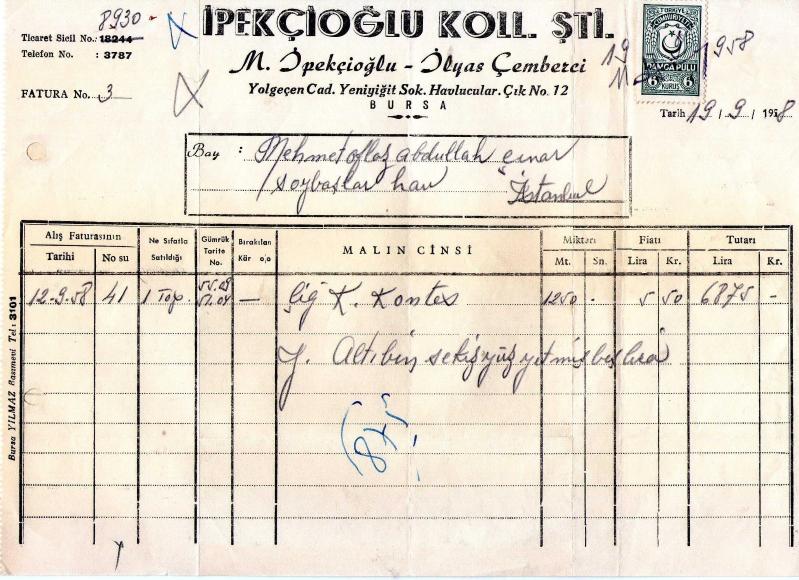 8930.
İPEKÇİOĞLU KOLL. ŞTİ.
Ticaret Sicil No.: 18244
Telefon No. : 3787
M. İpekçioğlu - İlyas Çemberci
FATURA No. 3
Yolgeçen Cad. Yeniyiğit Sok. Havlucular. Çık No. 12
BURSA
TÜRKİYE
CUMHURİYETİ
6 KURUŞ 6
19 1958
Tarih 19 / 9 / 1958
Bay : Mehmet abdullah çınar
soybaşlar han İstanbul
Alış Faturasının
Tarihi No su
Ne Sıfatla Satıldığı
Gümrük Tarite No.
Bırakılan Kâr o/o
MALIN CİNSİ
Miktarı
Mt. Sn.
Fiatı
Lira Kr.
Tutarı
Lira Kr.
12-9-58 41 1 Top. — Çiğ K. Kontes 1250 - 5 50 6875 -
y. Altıbin sekizyüz yetmişbeş lira
Bursa YILMAZ Basımevi Tel: 3101